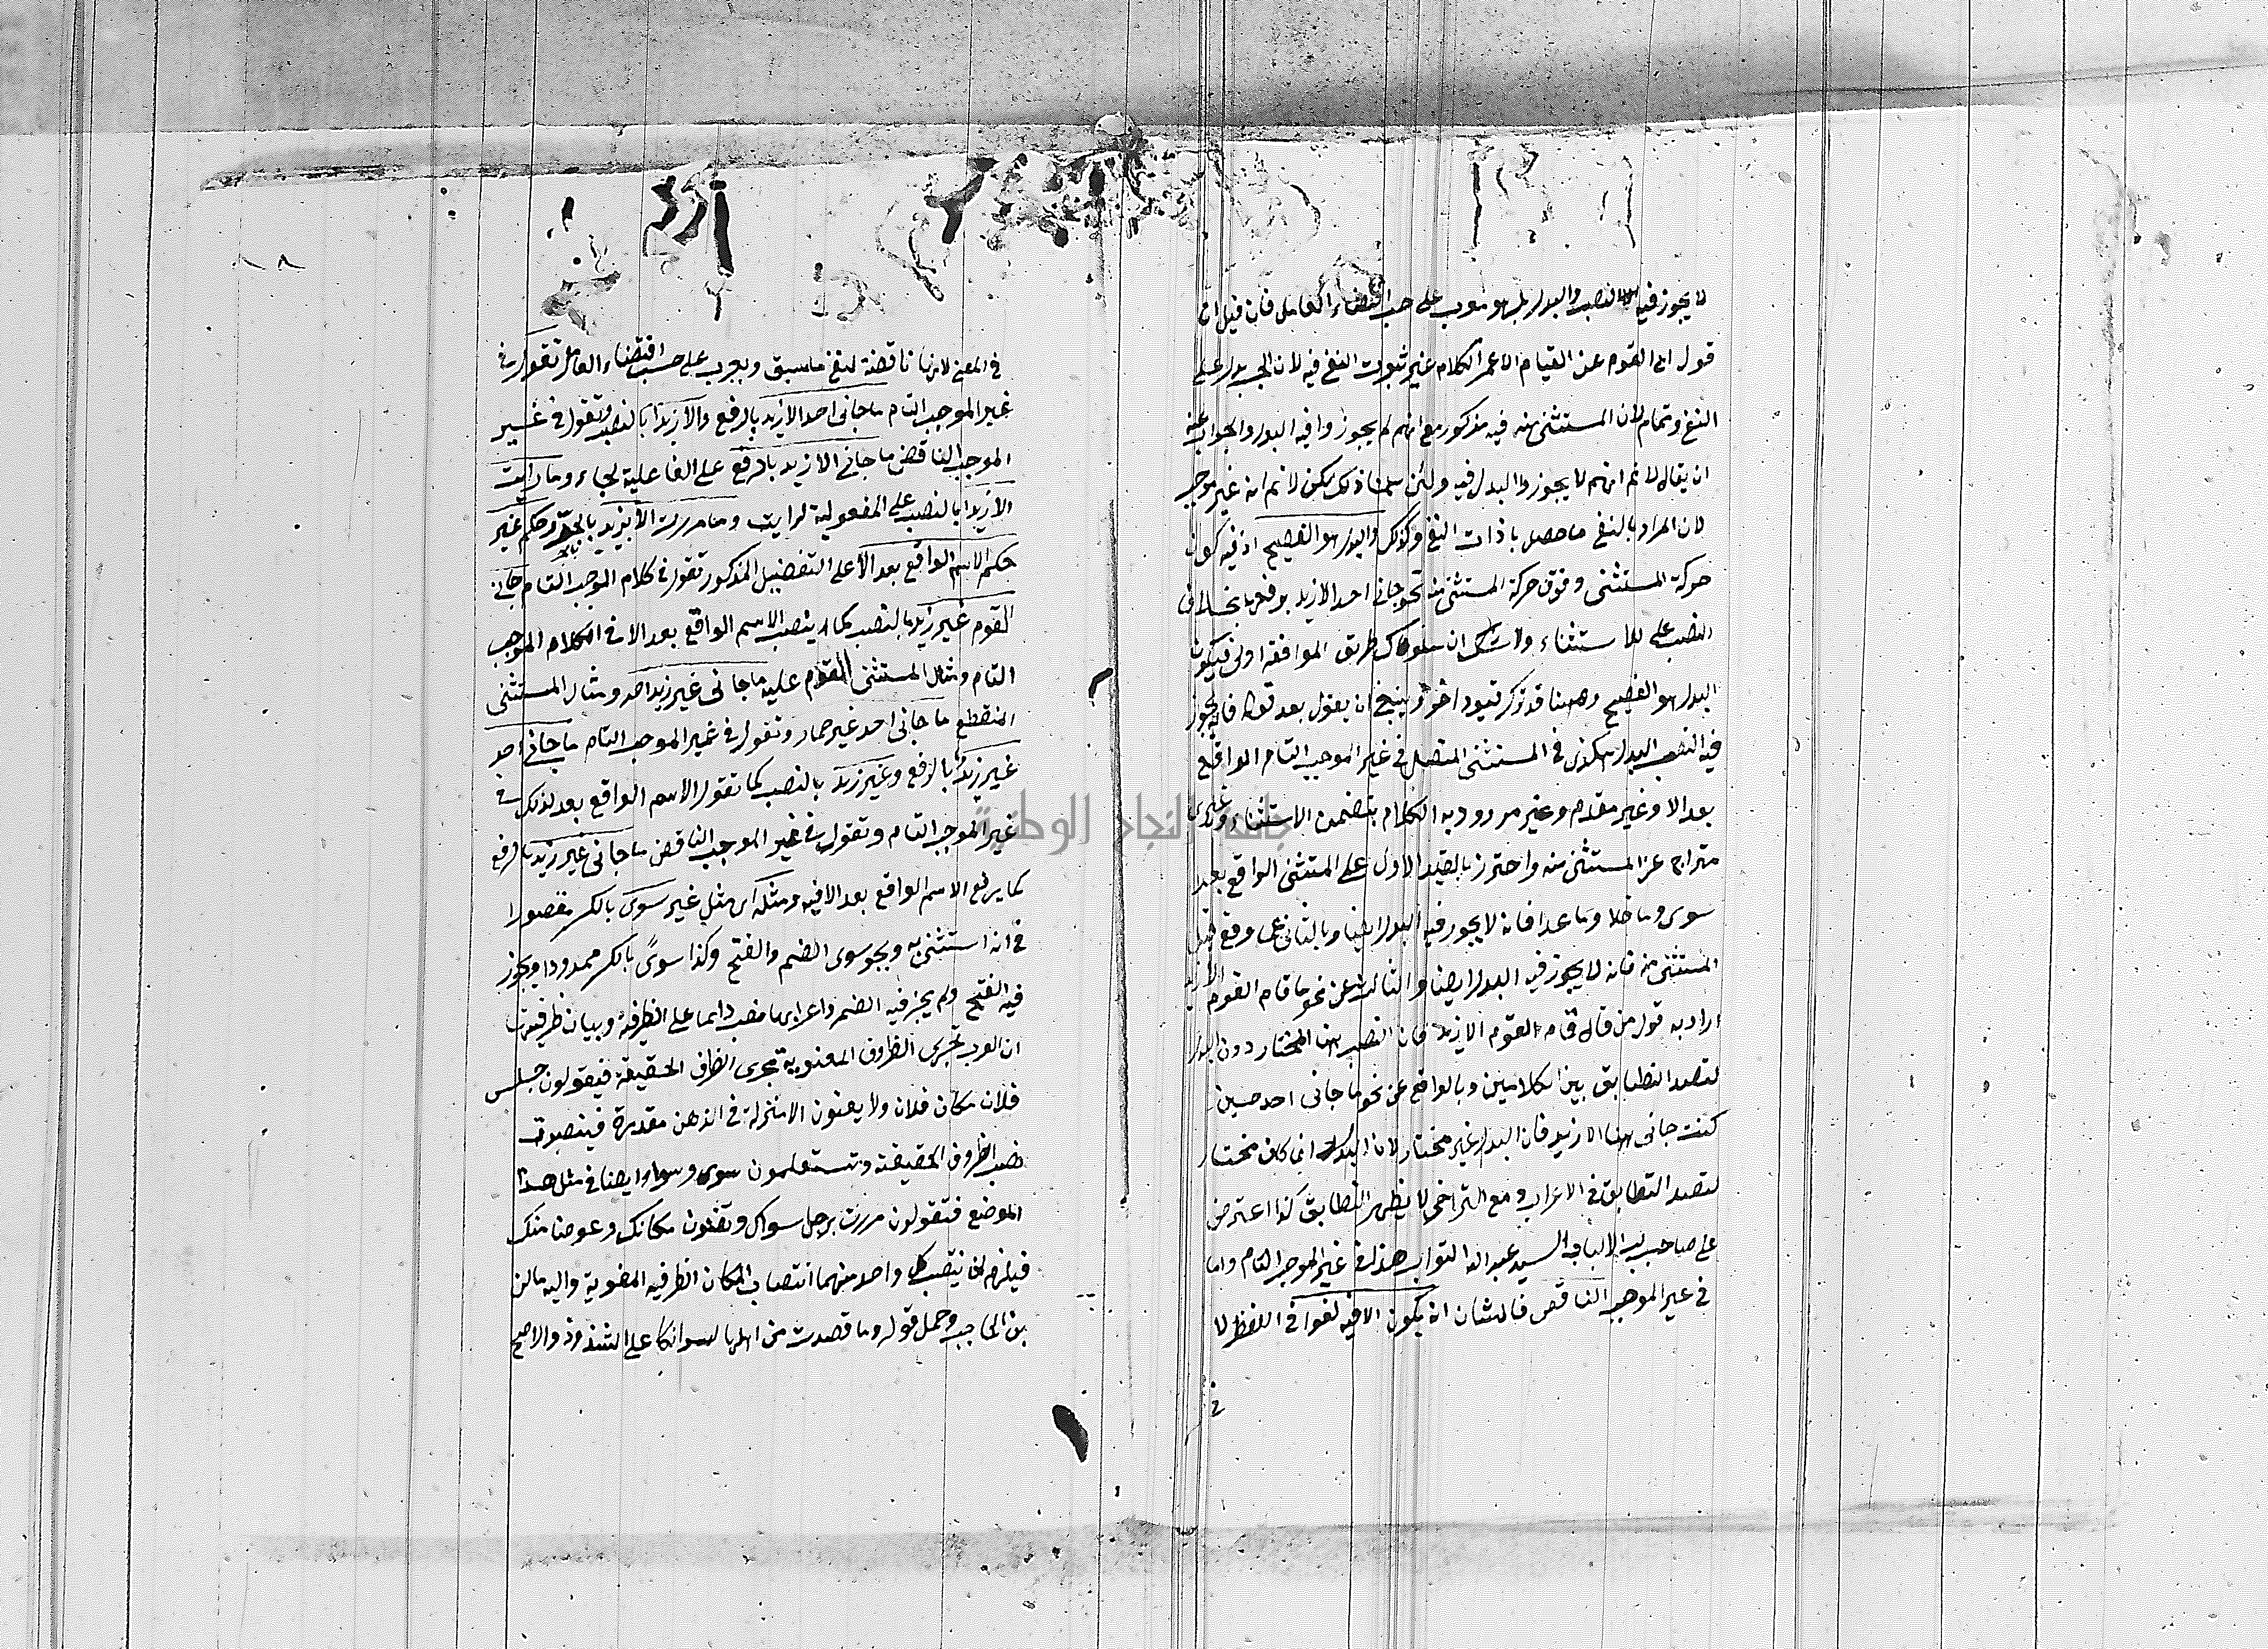 لا يجوز فيه الا النصب والبدل بل هو معرب على حسب اقتضاء العامل فان قيل ان
قول القوم عن القيام الا عمر الكلام غير ثبوت النفي فيه لان يدل على
النفي وتمام لان المستثنى منه فيه مذكور مع انهم لم يجوزوا فيه البدل والجواب عنه
ان يقال لا نم انهم لا يجوز والبدل فيه ولئن سلمنا ذلك لكن لا نم انه غير موجب
لان المراد بالنفي ما حصل باذات النفي وكذلك والبدل هو الفصيح اذ فيه كون
حركة المستثنى وفق حركة المستثنى منه نحو جاني احد الا زيد برفعهما بخلاف
النصب على الاستثناء ولا شك ان سلوك طريق الموافقة اولى فيكون
البدل هو الفصيح وههنا قد تذكر قيود اخر وينبغي ان يقول بعد قوله فانه يجوز
فيه النصب البدل هكذى في المستثنى المتصل في غير الموجب التام الواقع
بعد الا وغير مقدم وغير مردود به الكلام يتضمن الاستثناء وغير
متراخ عن المستثنى منه واحترز بالقيد الاول على المستثنى الواقع بعد
سوى وما خلا وما عدا فانه لا يجوز فيه البدل ايضا وبالثاني عما وقع قبل
المستثنى منه فانه لا يجوز فيه البدل ايضا والثالث عن نحو ما قام القوم الا زيد
اراد به قول من قال قام القوم الا زيدا فان النصب هنا المختار دون البدل
لقصد التطابق بين الكلامين وبالواقع عن نحو ما جاني احد حين
كنت جاني هنا الا زيد فان البدل غير مختار لان البدل انما كان مختار
لقصد التطابق في الاعراب ومع التراخي لا يظهر التطابق كذا اعترض
على صاحب لب الالباب السيد عبد الله التواب هذا في غير الموجب التام واما
في غير الموجب الناقص فالشان ان يكون الا فيه لغوا في اللفظ لا
في
في المعنى لانها ناقضة لنفي ما سبق ويعرب على حسب اقتضاء العامل تقول في
غير الموجب التام ما جاني احد الا زيد بالرفع والا زيدا بالنصب وتقول في غير
الموجب الناقض ما جاني الا زيد بالرفع على الفاعلية لجاء وما رايت
الا زيدا بالنصب على المفعولية لرايت وما مررت الا بزيد بالجر وحكم غير
حكم الاسم الواقع بعد الا على التفضيل المذكور تقول في كلام الموجب التام جاني
القوم غير زيد بالنصب كما ينصب الاسم الواقع بعد الا في الكلام الموجب
التام ومثال المستثنى المقدم عليه ما جاني غير زيد احد ومثال المستثنى
المنقطع ما جاني احد غير حمار وتقول في غير الموجب التام ما جاني احد
غير زيد بالرفع وغير زيد بالنصب كما تقول الاسم الواقع بعد لذلك في
غير الموجب التام وتقول في غير الموجب الناقض ما جاني غير زيد بالرفع
كما يرفع الاسم الواقع بعد الا فيه ومثله اى مثل غير سوى بالكسر مقصورا
في انه استثنى به ويجوز سوى الضم والفتح وكذا سوى بالكسر ممدودا ويجوز
فيه الفتح ولم يجز فيه الضم واعرابها نصب دايما على الظرفية وبيان ظرفيتها
ان العرب تجرى الظروف المعنوية مجرى الظرف الحقيقة فيقولون جلس
فلان مكان فلان ولا يعنون الا منزلة في الذهن مقدرة فينصبون
نصب الظروف الحقيقة وتستعملون سوى وسواء ايضا في مثل هذا
الموضع فتقولون مررت برجل سواك ويعنون مكانك وعوضا منك
فيلزم ان ينتصب كل واحد منهما انتصاب المكان الظرفيه المعنوية واليه مال
بن الحاجب وحمل قوله وما قصدت من اهلها لسوائكا على الشذوذ والاصح
جامعة النجاح الوطنية